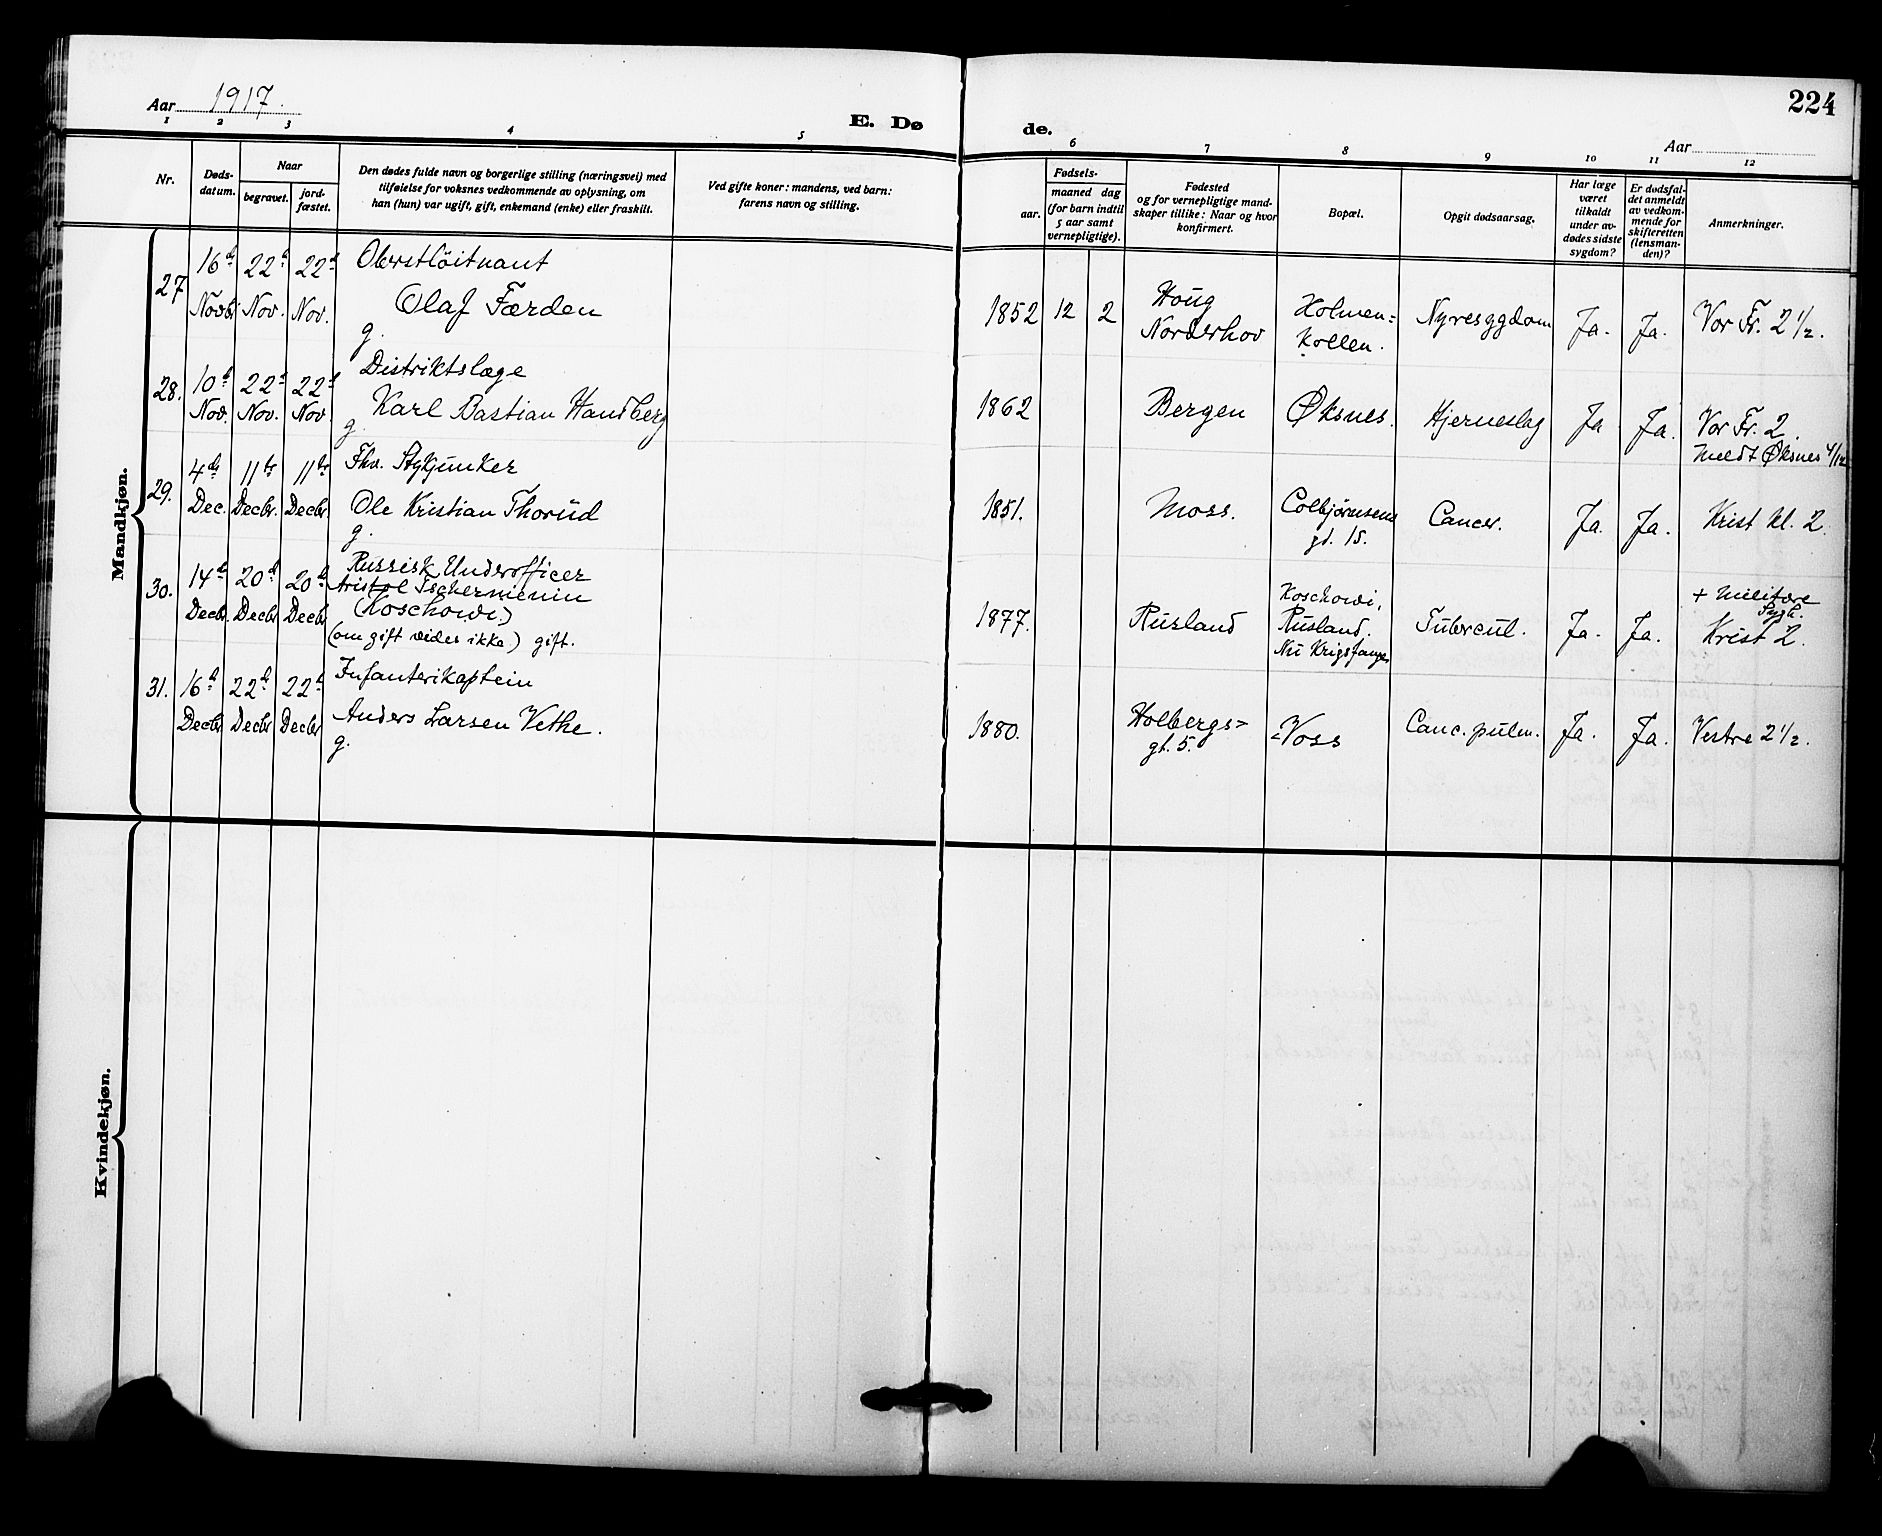 Aar 1917.
E. Dø
de.
224
Aar
1 2 3 4 5
6 7 8 9 10 11 12
Nr.
Døds-
datum.
Naar
begravet.
jord-
fæstet.
Den dødes fulde navn og borgerlige stilling (næringsvei) med
tilføielse for voksnes vedkommende av oplysning, om
han (hun) var ugift, gift, enkemand (enke) eller fraskilt.
Ved gifte koner: mandens, ved barn:
farens navn og stilling.
Fødsels-
aar.
maaned dag
(for barn indtil
5 aar samt
vernepligtige).
Fødested
og for vernepligtige mand-
skaper tillike: Naar og hvor
konfirmert.
Bopæl.
Opgit dødsaarsag.
Har læge
været
tilkaldt
under av-
dødes sidste
sygdom?
Er dødsfal-
det anmeldt
av vedkom-
mende for
skifteretten
(lensman-
den)?
Anmerkninger.
Mandkjøn.
27 16de Novbr. 22d Nov. 22d Nov.
Oberstløitnant
Olaf Færden
g.
1852 12 2
Houg
Norderhov
Holmen=
kollen.
Nyresygdom Ja. Ja. Vor Fr. 2 1/2.
28. 10d Nov. 22d Nov. 22d Nov.
Distriktslæge
Karl Bastian Handberg
g.
1862 Bergen Øksnes. Hjerneslag Ja Ja.
Vor Fr. 2.
meldt Øksnes 4/12
29. 4de Dec. 11te Decbr. 11te Decbr.
Fhv. Stykjunker
Ole Kristian Thorud
g.
1851. Moss.
Colbjørnsens
gd. 15.
Cancer. Ja. Ja. Krist kl. 2.
30. 14d Decbr. 20d Decbr 20d Decbr
Russisk Underofficer
Tschermenin
(Koschowi.)
(om gift vides ikke) gift.
1877. Rusland
Koschowi,
Rusland.
Nu Krigsfange
Tubercul. Ja. Ja.
+ Militære
Sygh.
Krist 2.
31. 16d Decbr 22d Decbr 22d Decbr
Infanterikaptein
Anders Larsen Vethe.
g.
1880.
Holbergs=
gt. 5.
=Voss
Canc. pulm. Ja. Ja. Vestre 2 1/2.
Kvindekjøn.